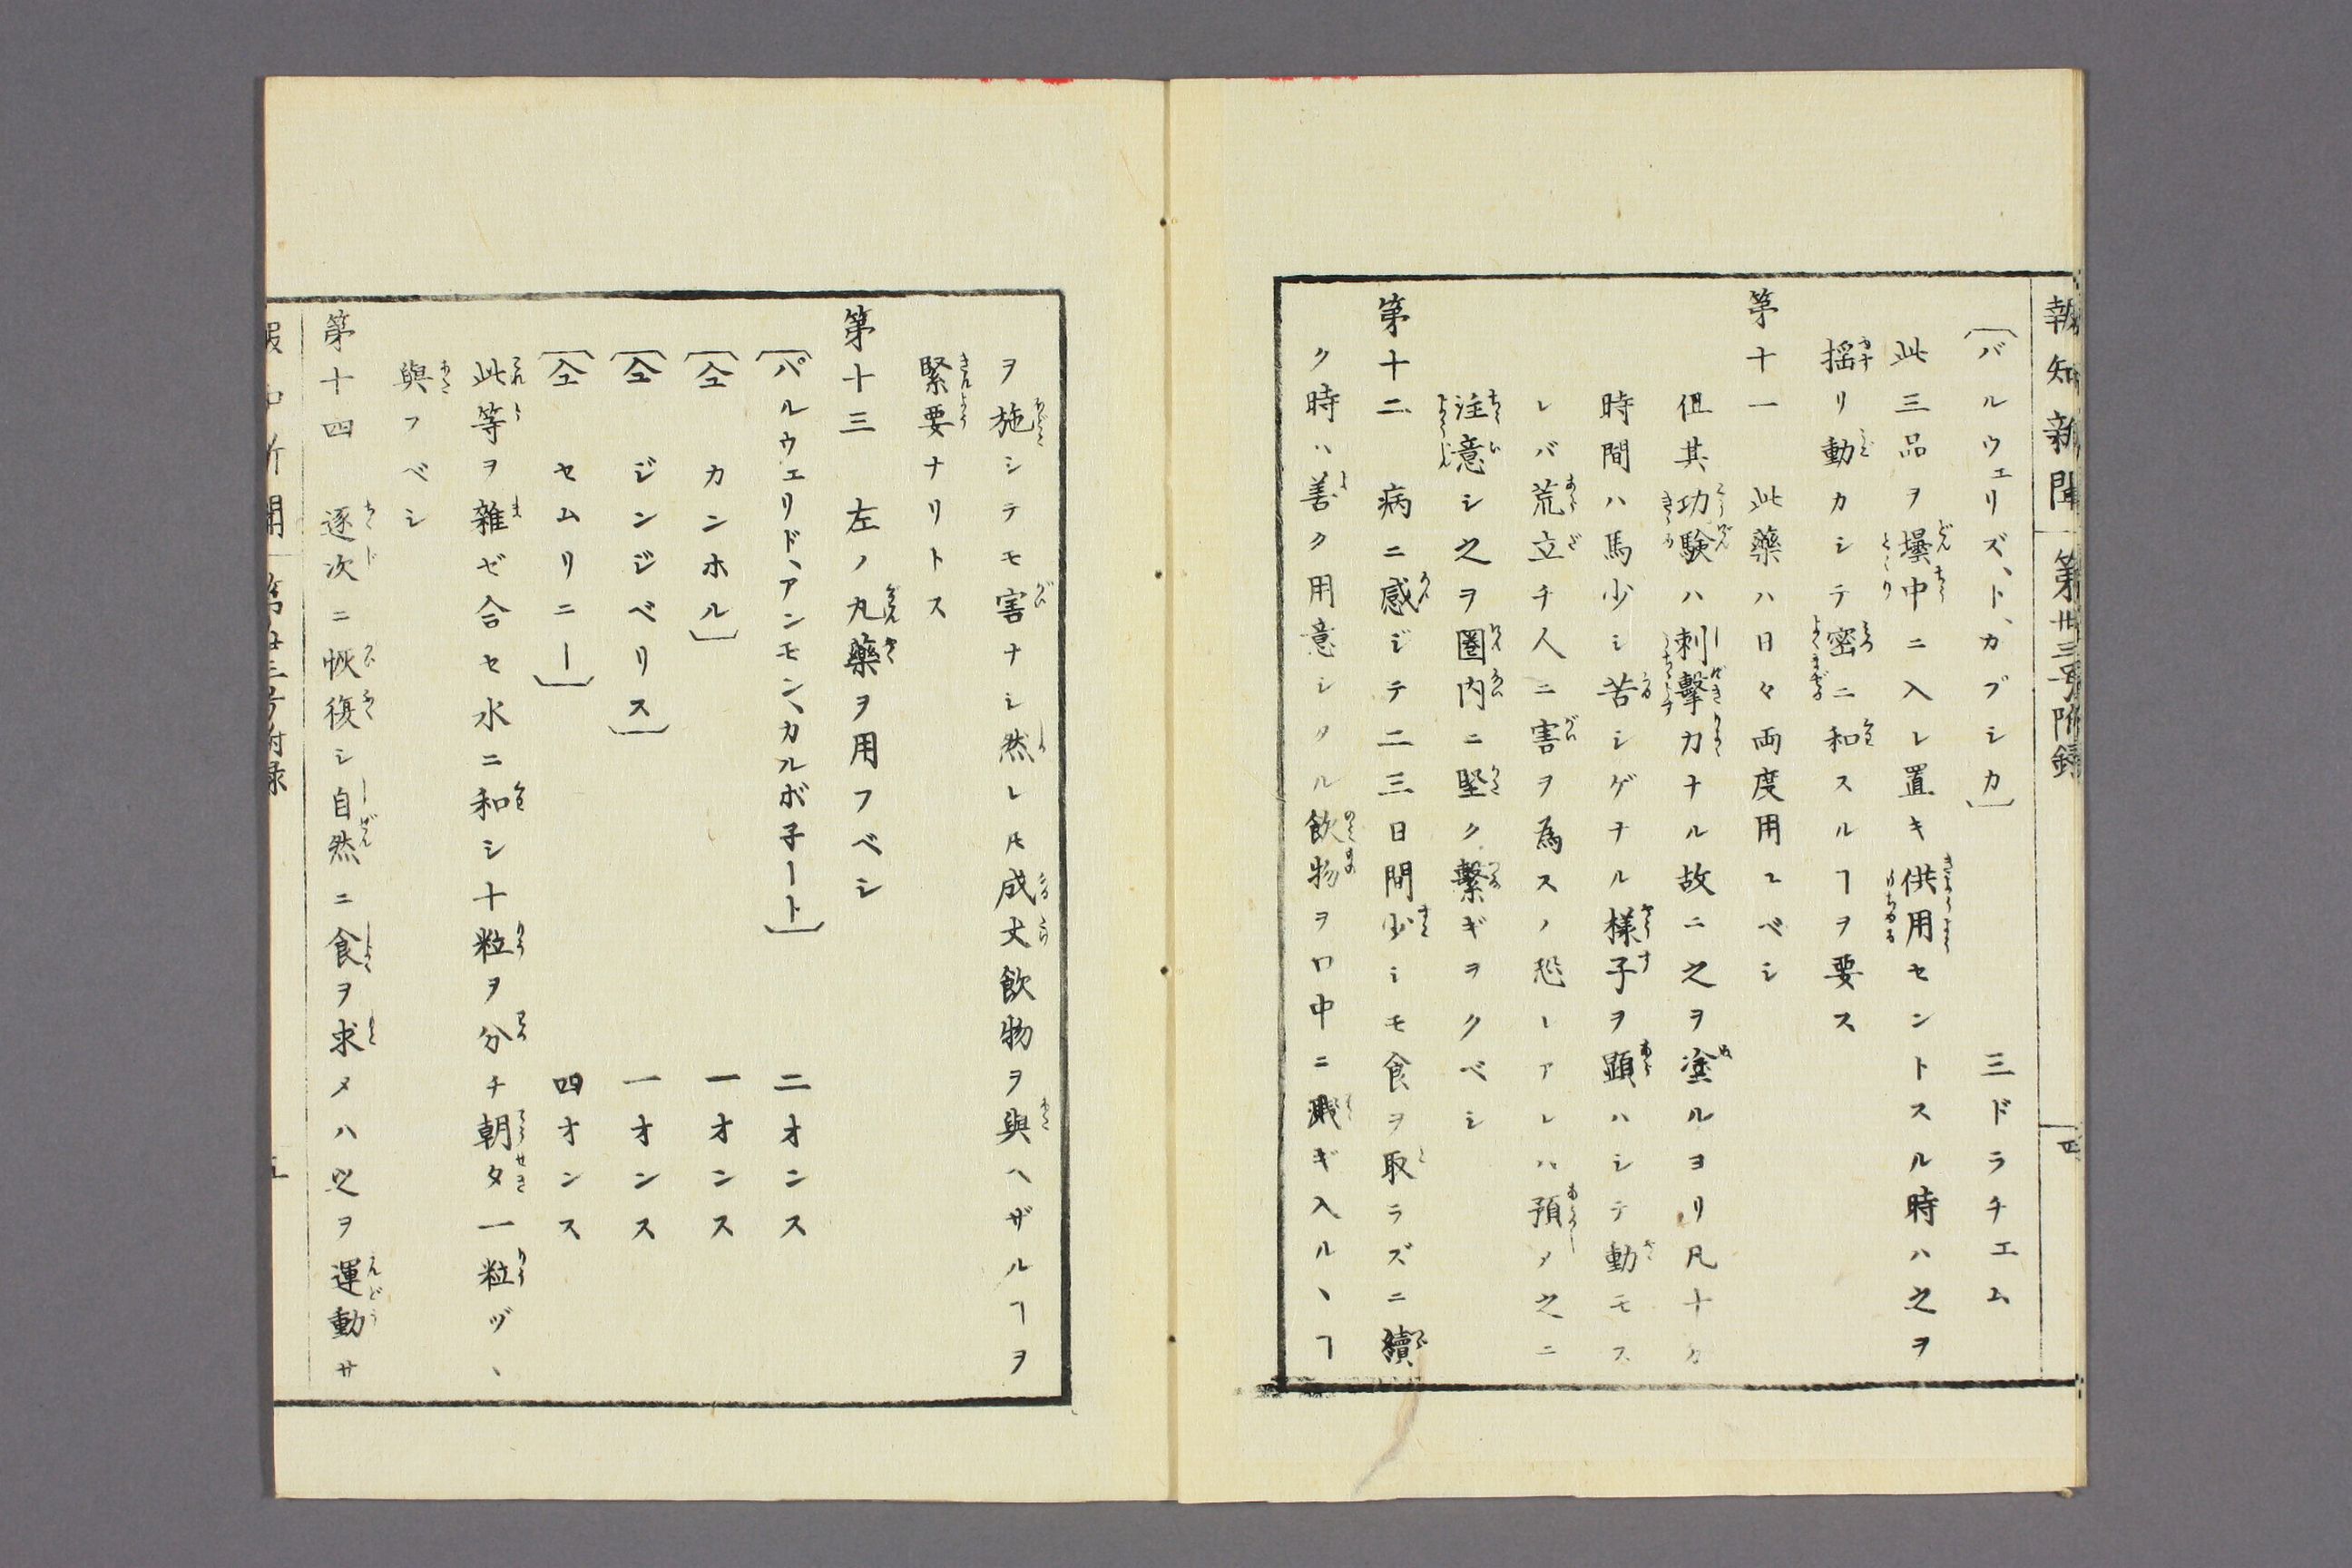 報知新聞 第卅三号附録 四
〔バルウェリズ、ト、カブシカ〕 三ドラチエム
此三品ヲ壜中ニ入レ置キ供用セントスル時ハ之ヲ
揺リ動カシテ密ニ和スルヿヲ要ス
第十一 此藥ハ日々両度用ユベシ
但其功験ハ刺擊力ナル故ニ之ヲ塗ルヨリ凡十分
時間ハ馬少シ苦シゲナル様子ヲ顕ハシテ動モス
レバ荒立チ人ニ害ヲ為スノ恐レアレハ預メ之ニ
注意シ之ヲ圏内ニ堅ク繫ギヲクベシ
第十二 病ニ感ジテ二三日間少シモ食ヲ取ラズニ續
ク時ハ善ク用意シタル飲物ヲ口中ニ濺ギ入ルヽヿ
ヲ施シテモ害ナシ然レ𪜈成丈飲物ヲ與ヘザルヿヲ
緊要ナリトス
第十三 左ノ丸藥ヲ用フベシ
〔パルウェリド、アンモン、カルボ子ート〕 二オンス
〔仝 カンホル〕 一オンス
〔仝 ジンジベリス〕 一オンス
〔仝 セムリニー〕 四オンス
此等ヲ雑ゼ合セ水ニ和シ十粒ヲ分チ朝夕一粒ヅヽ
與フベシ
第十四 逐次ニ恢復シ自然ニ食ヲ求メハ之ヲ運動サ
報知新聞 第卅三号附録 五